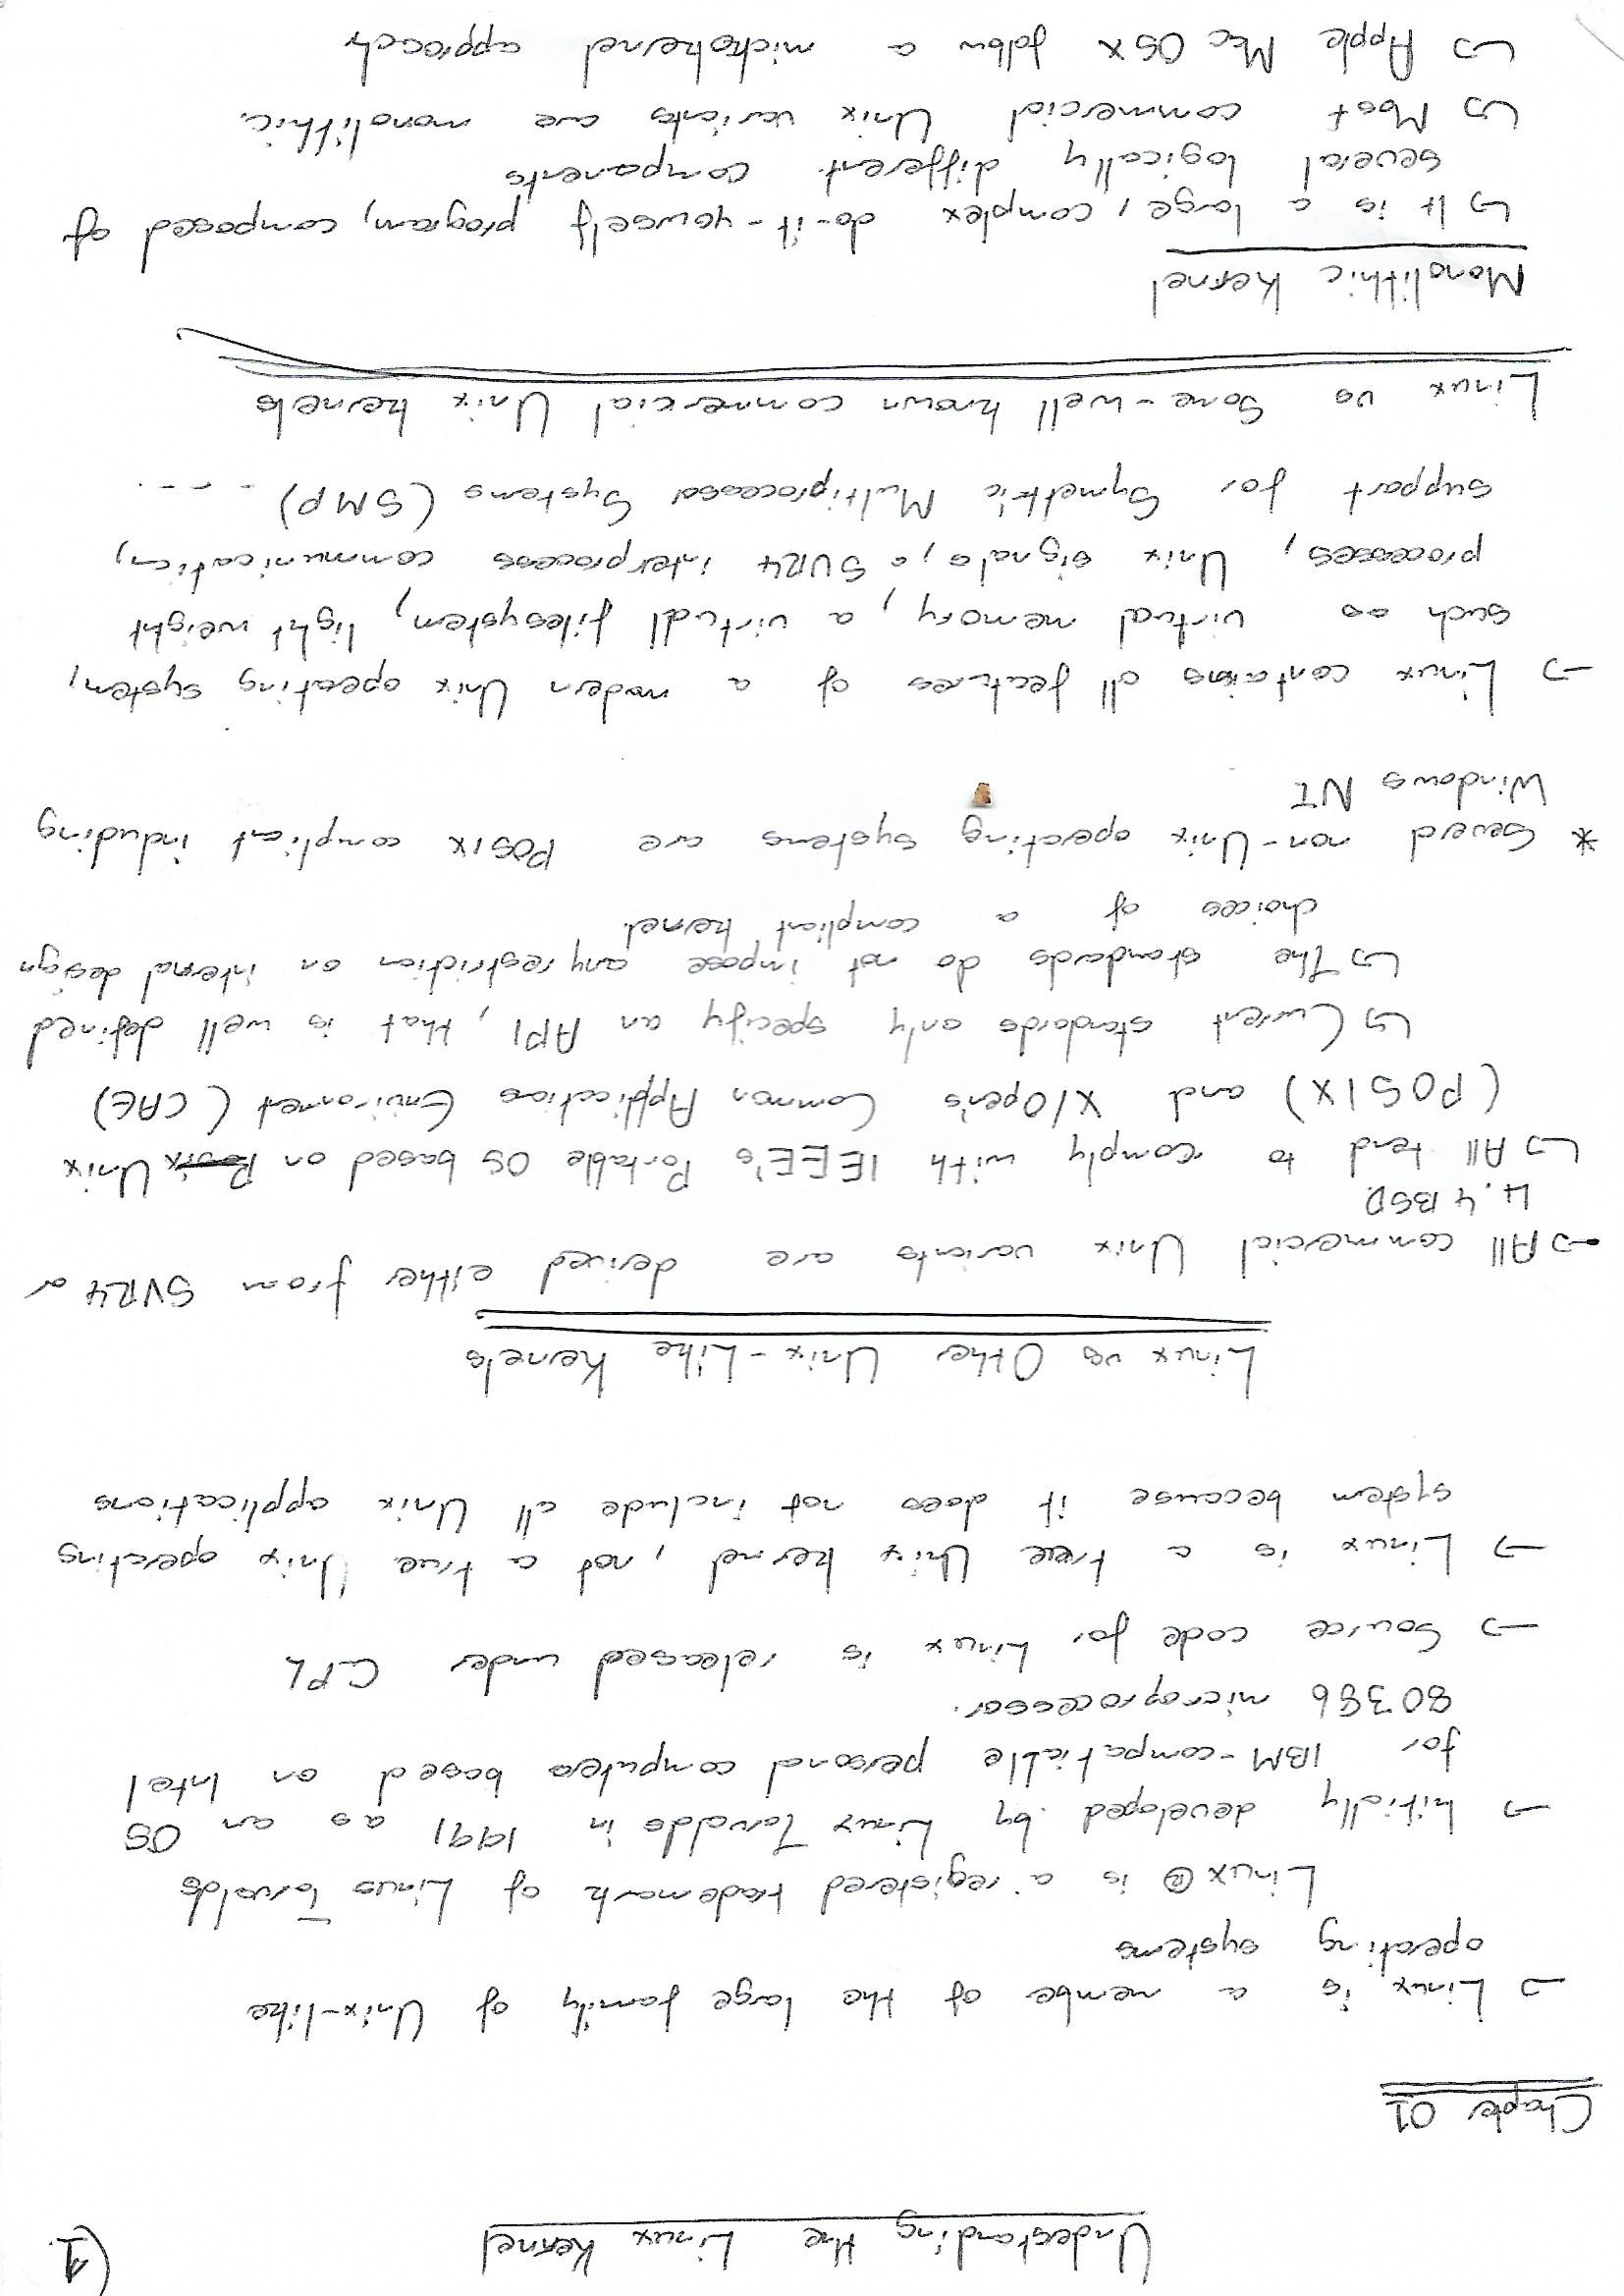 Understanding the Linux Kernel
(1.
Chapter 01
→ Linux is a member of the large family of Unix-like
operating systems
Linux® is a registered trademark of Linus Torvalds
→ Initially developed by Linux Torvalds in 1991 as an OS
for IBM-compatiable personal computers based on Intel
80386 microprocessor.
→ Source code for Linux is released under GPL
→ Linux is a true Unix kernel, not a true Unix operating
system because it does not include all Unix applications
Linux vs Other Unix-Like Kernels
→ All commercial Unix variants are derived either from SVR4 or
4.4 BSD.
↳ All tend to comply with IEEE's Portable OS based on Posix Unix
(POSIX) and X/Open's Common Applications Environment (CAE)
↳ Current standards only specify an API, that is well defined
↳ The standards do not impose any restriction on internal design
choices of a compliant kernel.
* Several non-Unix operating systems are POSIX compliant including
Windows NT
→ Linux contains all features of a modern Unix operating system,
such as virtual memory, a virtual filesystem, light weight
processes, Unix signals, a SVR4 interprocess communication,
support for Symettric Multiprocessor Systems (SMP) - - - -.
Linux vs Some-well known commercial Unix kernels
Monolithic Kernel
↳ It is a large, complex do-it-yourself program, composed of
several logically different components
↳ Most commercial Unix variants are monolithic.
↳ Apple Mac OS X follow a mickokernel approach